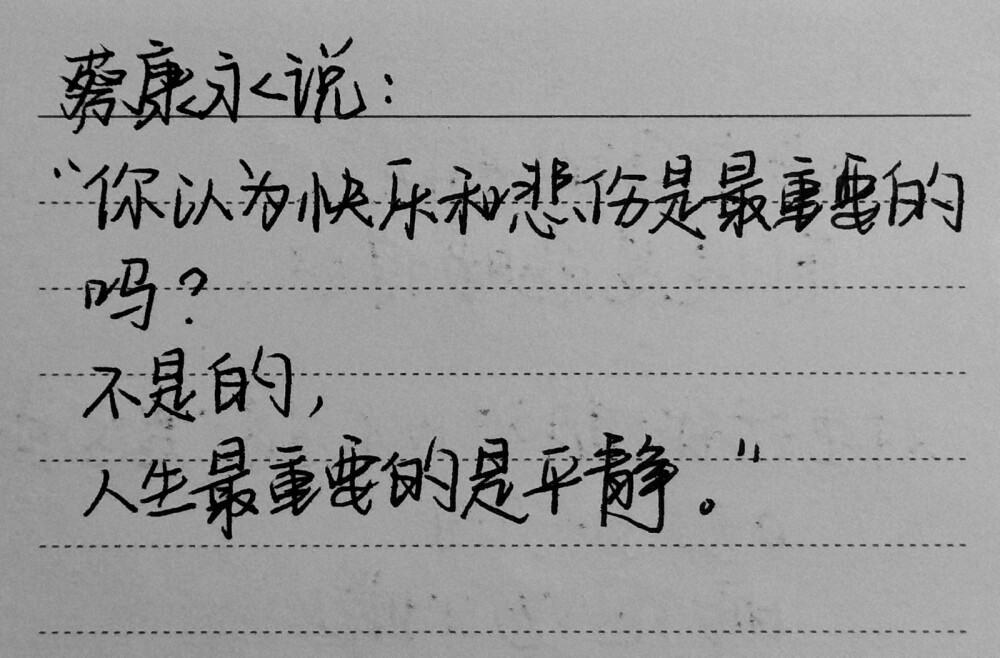 蔡康永说:
“你认为快乐和悲伤是最重要的
吗?
不是的,
人生最重要的是平静。”